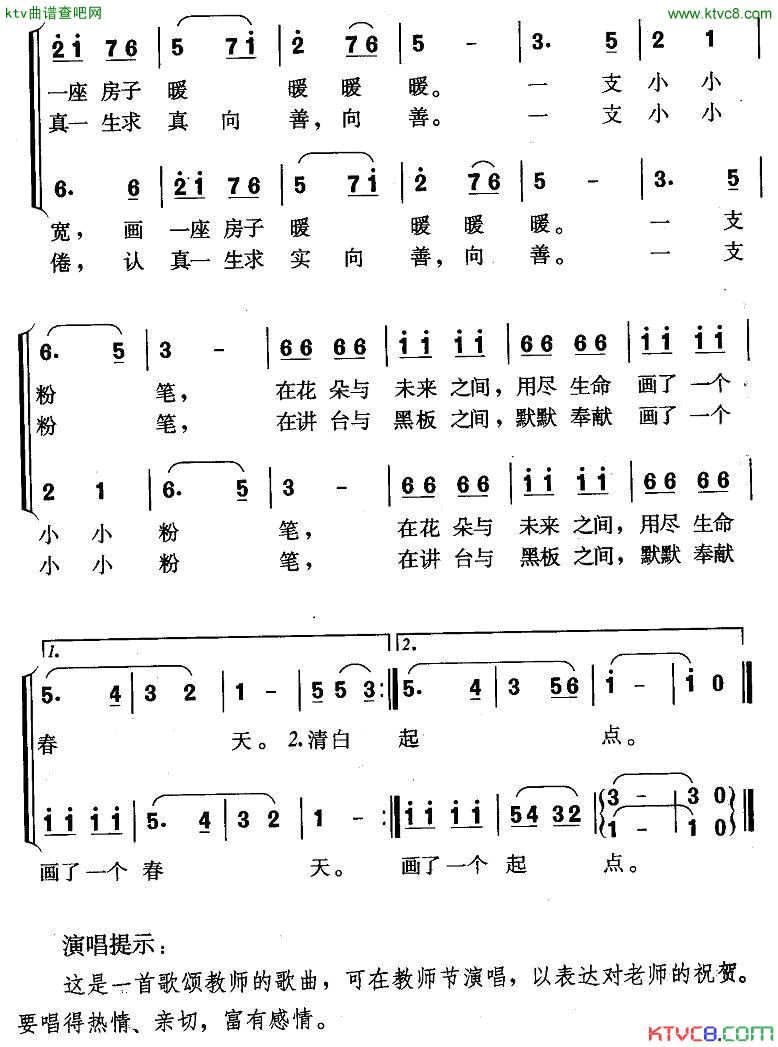 ktv曲谱查吧网
www.ktvc8.com
2 1 7 6 | 5 7 1 | 2 7 6 | 5 - | 3. 5 | 2 1
一座 房子 暖 暖 暖 暖。 一 支 小 小
真一 生求 真 向 善，向 善。 一 支 小 小
6. 6 | 2 1 7 6 | 5 7 1 | 2 7 6 | 5 - | 3. 5
宽， 画 一座 房子 暖 暖 暖 暖。 一 支
倦， 认 真一 生求 实 向 善，向 善。 一 支
6. 5 | 3 - | 66 66 | 11 11 | 66 66 | 11 11
粉 笔， 在花 朵与 未来 之间，用尽 生命 画了 一个
粉 笔， 在讲 台与 黑板 之间，默默 奉献 画了 一个
2 1 | 6. 5 | 3 - | 66 66 | 11 11 | 66 66
小 小 粉 笔， 在花 朵与 未来 之间，用尽 生命
小 小 粉 笔， 在讲 台与 黑板 之间，默默 奉献
1. 2.
5. 4 | 3 2 | 1 - | 5 5 3 :| 5. 4 | 3 56 | 1 - | 1 0
春 天。 2.清白 起 点。
11 11 | 5. 4 | 3 2 | 1 - :| 11 11 | 54 32 | 3 - | 3 0
1 - | 1 0
画了 一个 春 天。 画了 一个 起 点。
演唱提示：
这是一首歌颂教师的歌曲，可在教师节演唱，以表达对老师的祝贺。
要唱得热情、亲切，富有感情。
KTVC8.com